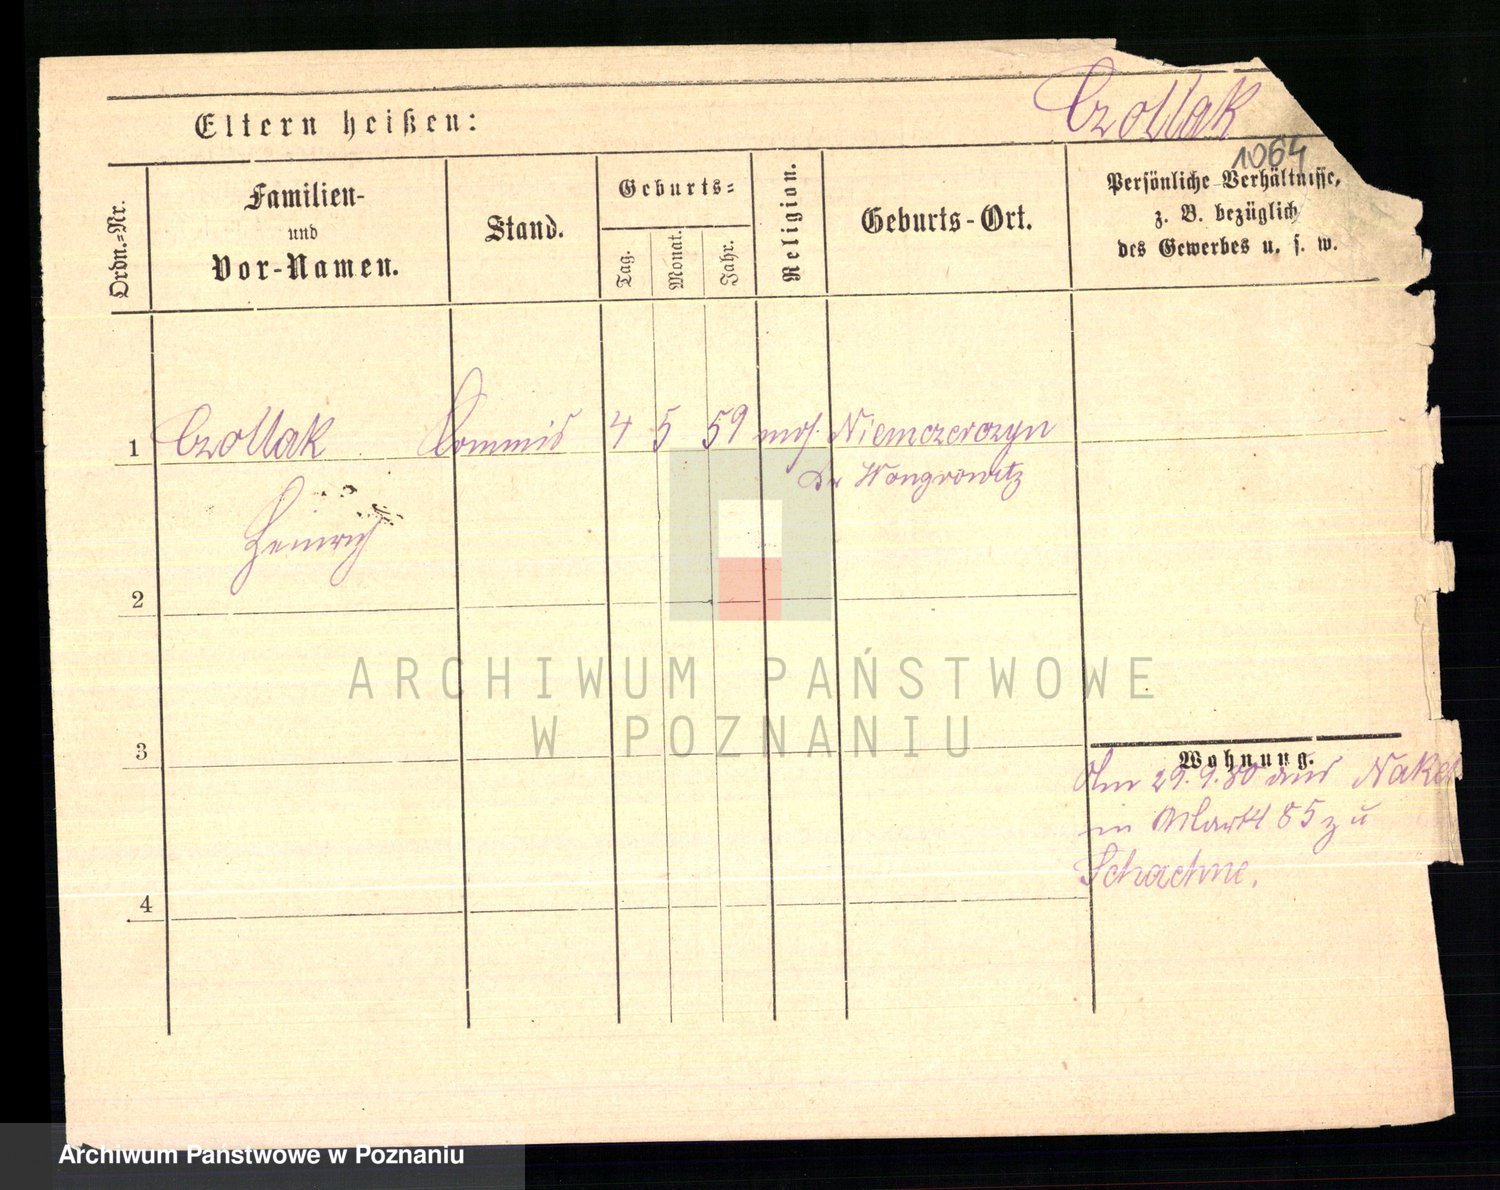 Czollak
1064
Eltern heißen:
Ordn.=Nr.
Familien-
und
Vor-Namen.
Stand.
Geburts=
Tag.
Monat.
Jahr.
Religion.
Geburts-Ort.
Persönliche Verhältnisse,
z. B. bezüglich
des Gewerbes u. s. w.
1 Czollak Commis 4 5 59 mos. Niemczerczyn
Wongrowitz
Heinrich
2
3
4
Wohnung.
Am 29.9.80 aus Nakel
in Markt 85 zu
Schachne.
ARCHIWUM PAŃSTWOWE
W POZNANIU
Archiwum Państwowe w Poznaniu